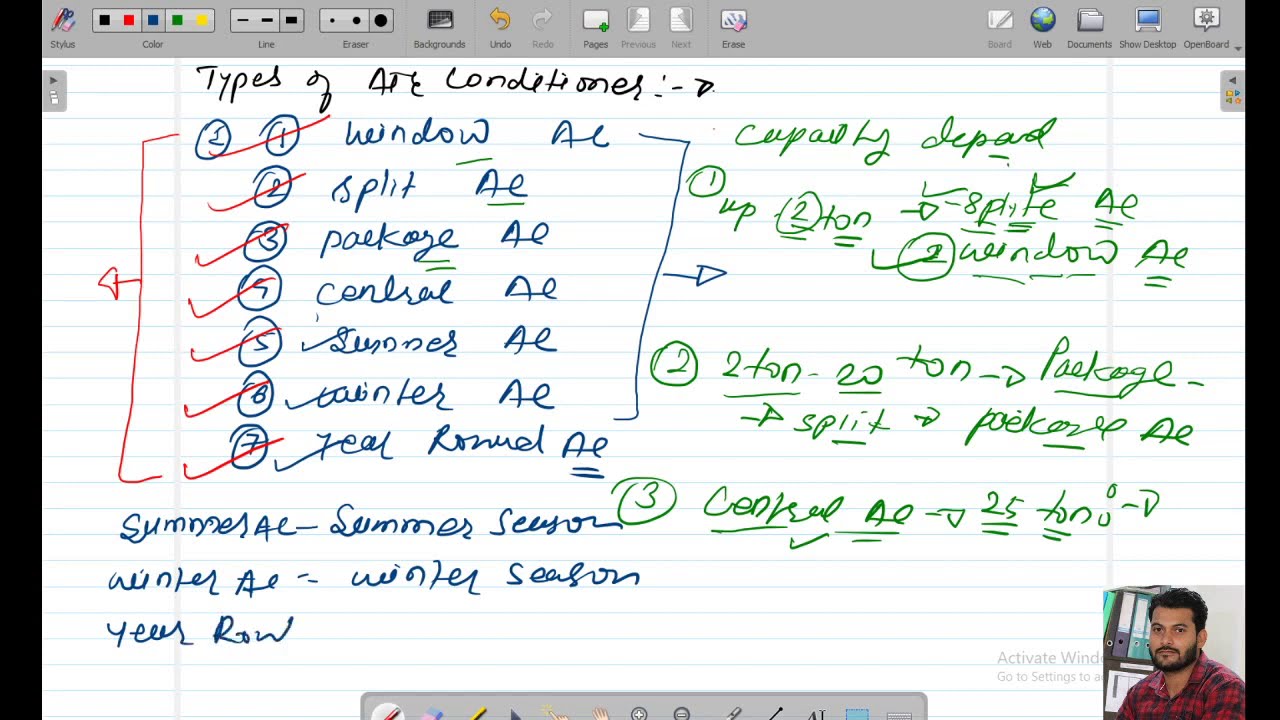 Stylus
Color
Line
Eraser
Backgrounds
Undo
Redo
Pages
Previous
Next
Erase
Board
Web
Documents
Show Desktop
OpenBoard
Types of Air Conditioner :-
1 1 window Ac
2 split Ac
3 package Ac
4 central Ac
5 Summer Ac
6 winter Ac
7 year Round Ac
Summer Ac - Summer Season
winter Ac - winter Season
year Row
capacity depand
1 up 2 ton → splite Ac
2 window Ac
2 2 ton - 20 ton → Package -
→ split → package Ac
3 Central Ac → 25 ton
Activate Wind
Go to Settings to a